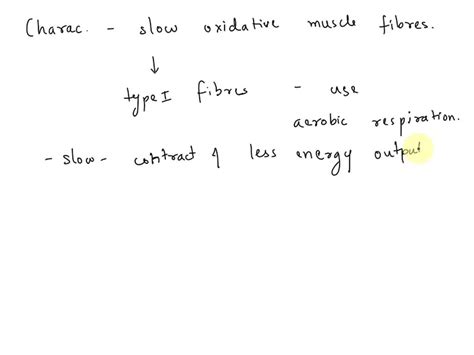 Charac. - slow oxidative muscle fibres.
↓
type I fibres - use
aerobic respiration.
- slow - contract & less energy output